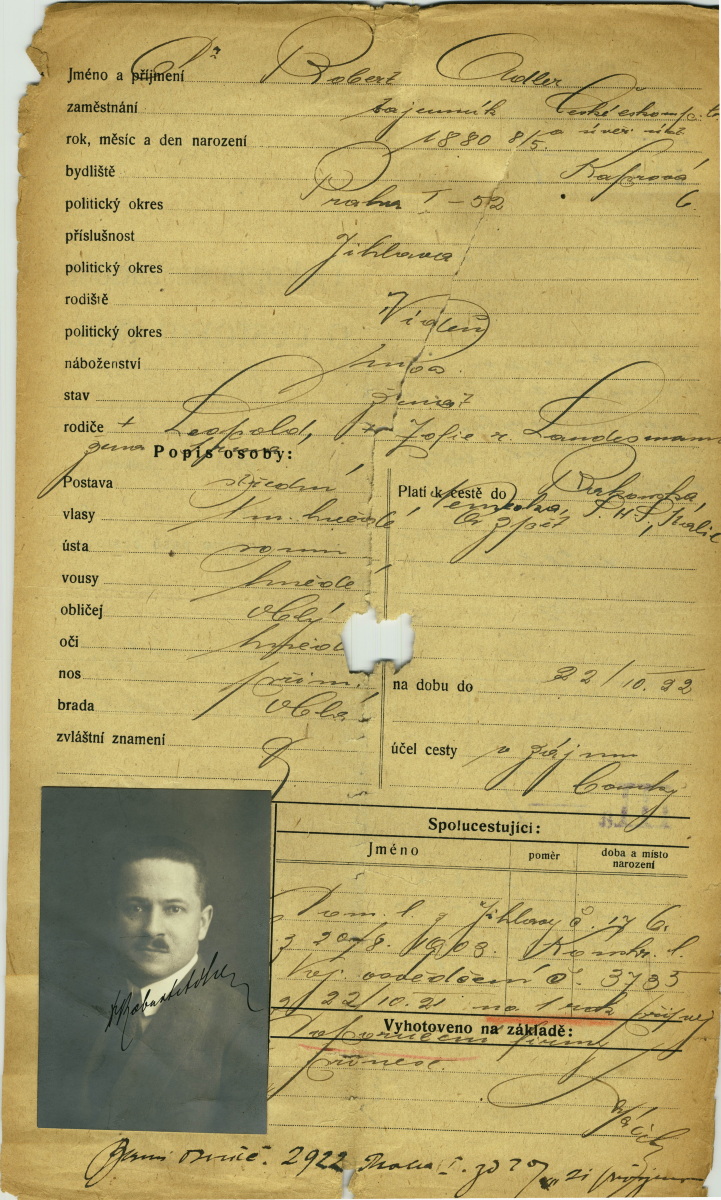 Jméno a příjmení Dr Robert Adler
zaměstnání tajemník České eskomp.
a úvěr.
rok, měsíc a den narození 1880 8/5
bydliště Kaprova
politický okres Praha I – 52 6
příslušnost Jihlava
politický okres
rodiště Vídeň
politický okres
náboženství
stav ženat
rodiče + Leopold, + Žofie r. Landesmann
žena
Popis osoby:
Postava střední
vlasy tm. hnědé
ústa rovná
vousy hnědé
obličej oblý
oči hnědé
nos přím.
brada oblá
zvláštní znamení
Platí k cestě do Rakouska,
Německa, P.H.S., Italie
a zpět
na dobu do 22/10.22
účel cesty v zájmu
banky
Spolucestující:
Jméno
poměr
doba a místo narození
Dom. l. z Jihlavy č. 176
z 20/8. 1903. l.
Voj. osvědčení č. 3783
z 22/10.21. na 1 rok
Vyhotoveno na základě:
Doporučení firmy
2922 Praha I.